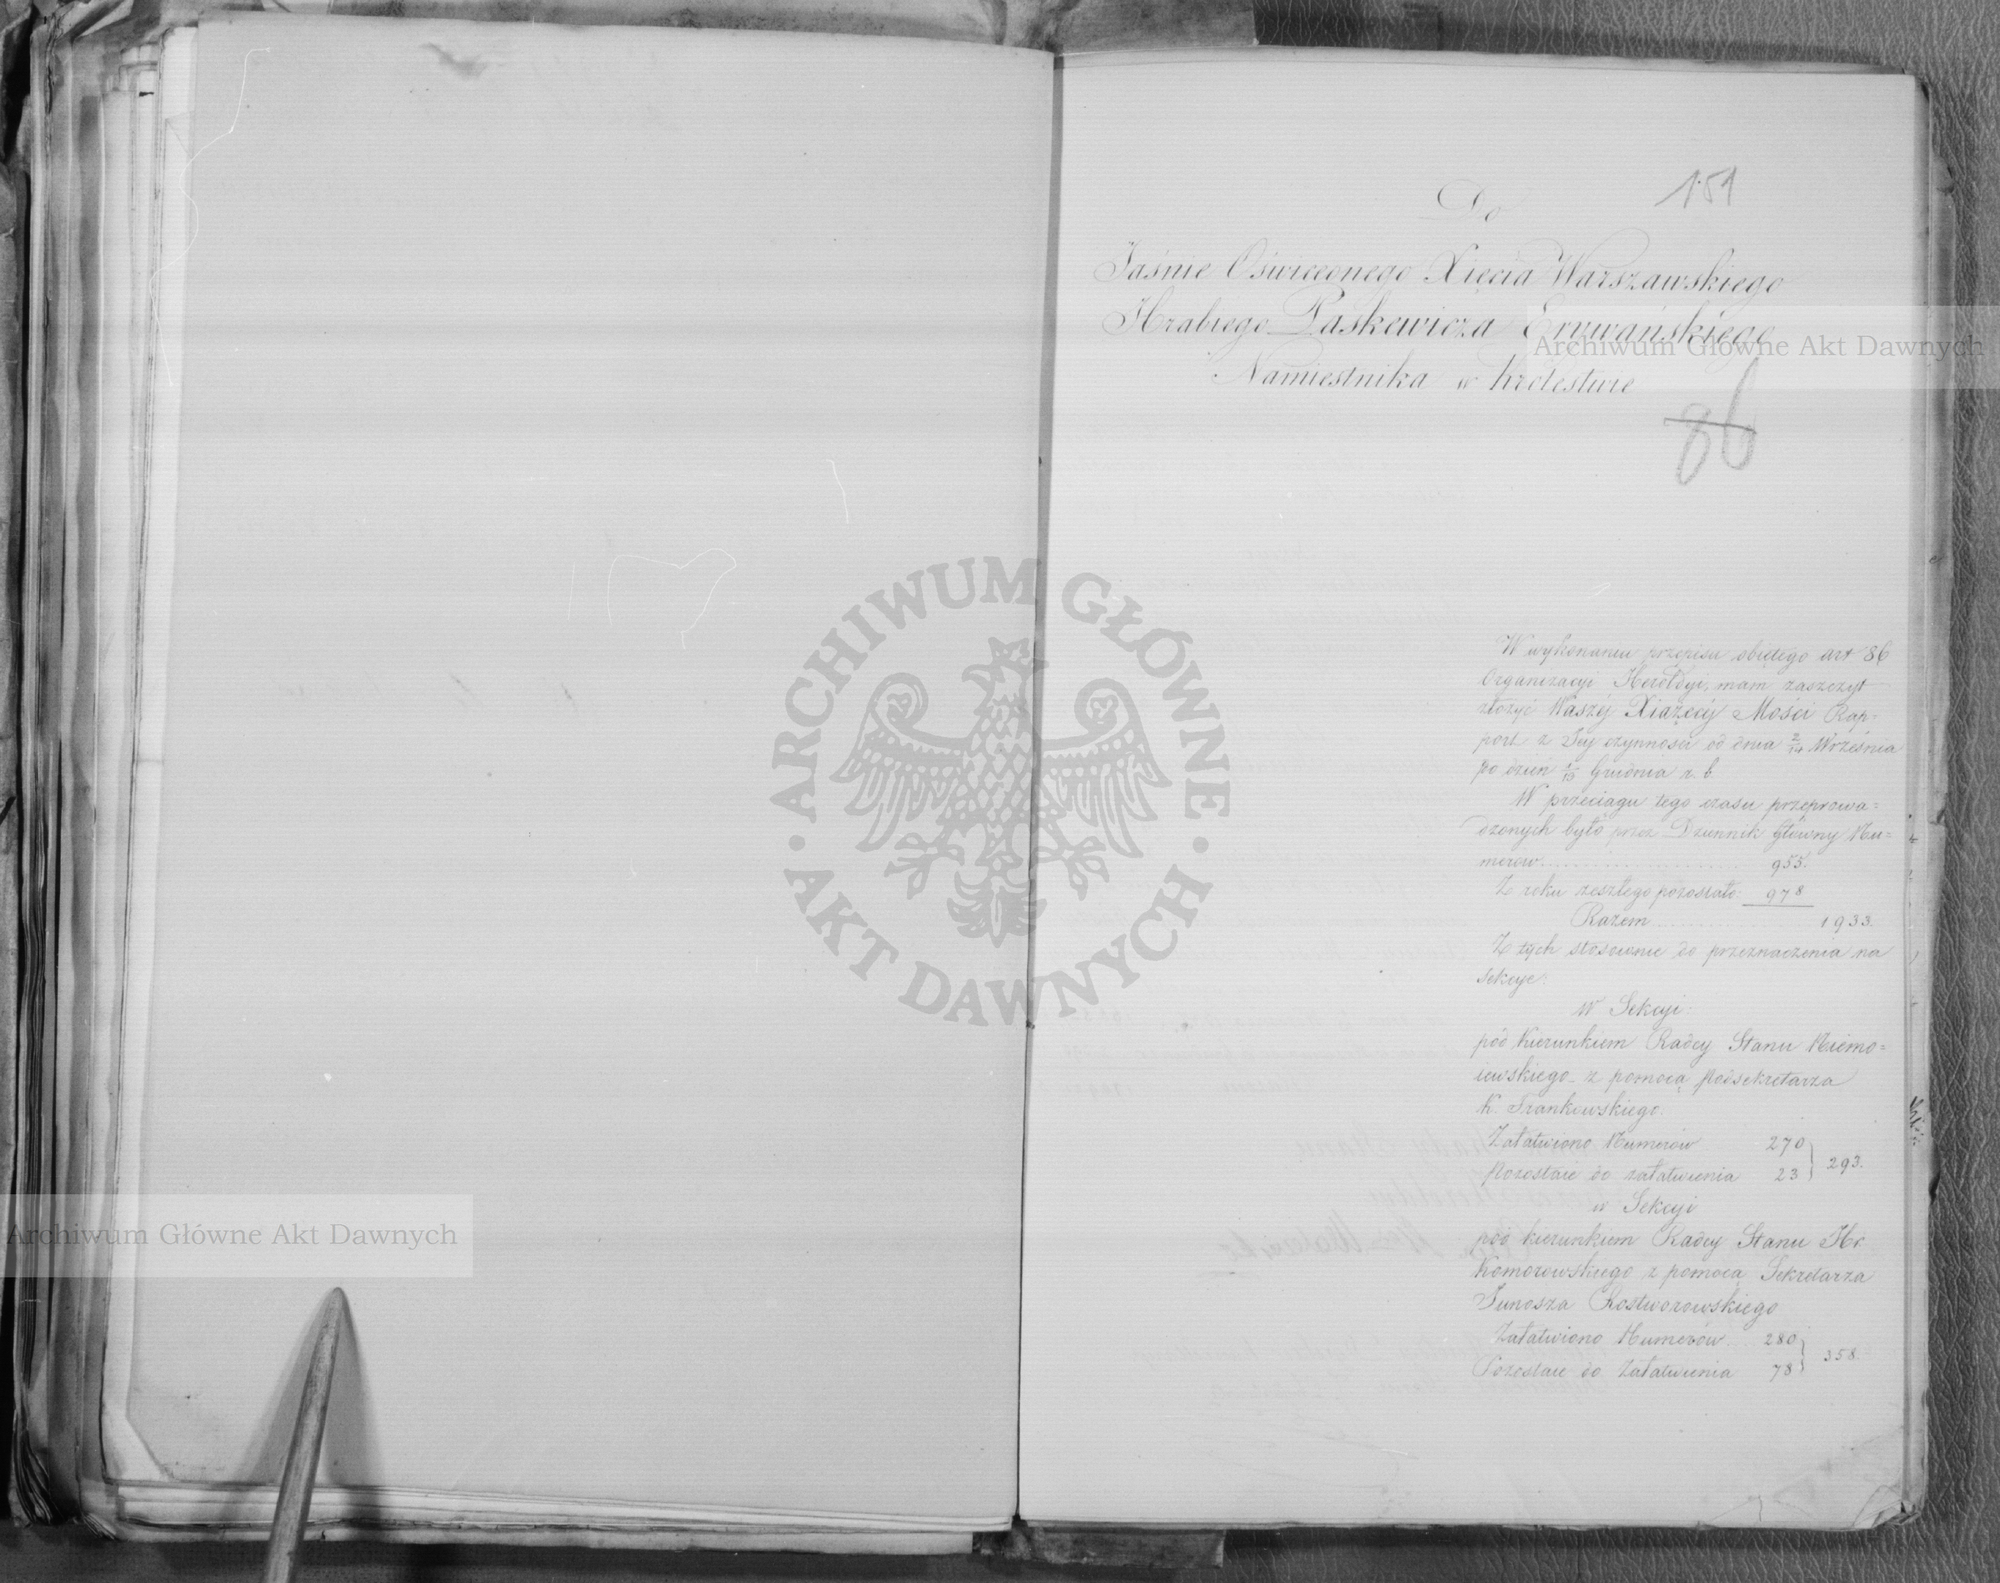 151
Do
Jaśnie Oświeconego Xięcia Warszawskiego
Hrabiego Paskewicza Erywańskiego
Namiestnika w Królestwie
86
W wykonaniu przepisu objętego art 86
Organizacyi Heroldyi, mam zaszczyt
złożyć Waszéj Xiążęcéj Mości Rap-
port z Jey czynności od dnia 2/14 Września
po dzień 1/13 Grudnia r. b.
W przeciągu tego czasu przeprowa=
dzonych było przez Dziennik Główny Nu=
merów 955.
Z roku zeszłego pozostało 978
Razem 1933.
Z tych stosownie do przeznaczenia na
sekcye:
W Sekcyi:
pód Kierunkiem Radcy Stanu Niemo=
iewskiego z pomocą Podsekretarza
K. Frankowskiego.
Załatwiono Numerów 270
Pozostaie do załatwienia 23 } 293.
w Sekcyi
pód kierunkiem Radcy Stanu Hr.
Komorowskiego z pomocą Sekretarza
Junosza Rostworowskiego
Załatwiono Numerów 280
Pozostaie do załatwienia 78 } 358.
Archiwum Główne Akt Dawnych
ARCHIWUM GŁÓWNE · AKT DAWNYCH ·
Archiwum Główne Akt Dawnych